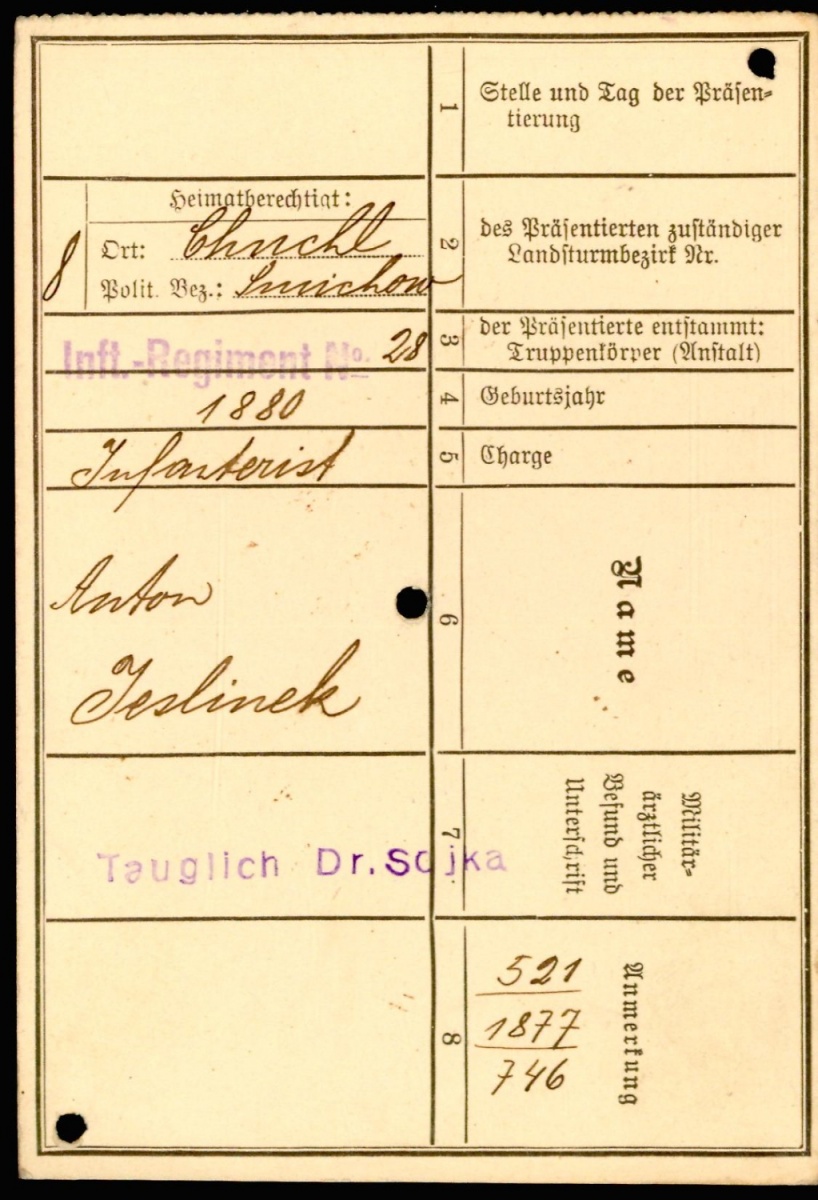 1
Stelle und Tag der Präsen-
tierung
8
Heimatberechtigt:
Ort: Chuchl
Polit. Bez.: Smichow
2
des Präsentierten zuständiger
Landsturmbezirk Nr.
Inft.-Regiment No. 28
3
der Präsentierte entstammt:
Truppenkörper (Anstalt)
1880
4
Geburtsjahr
Infanterist
5
Charge
Anton
Jeslinek
6
Name
Tauglich Dr. Sojka
7
Militär-
ärztlicher
Befund und
Unterschrift
8
521
1877
746
Anmerkung